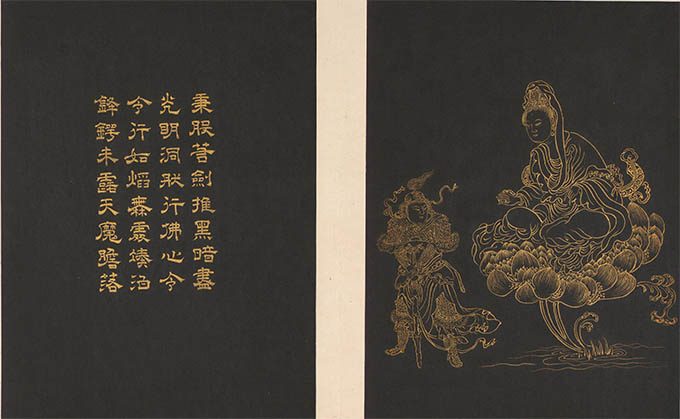 秉般若劍推黑暗盡
光明洞然行佛心令
令行如熖
鋒鍔未露天魔膽落